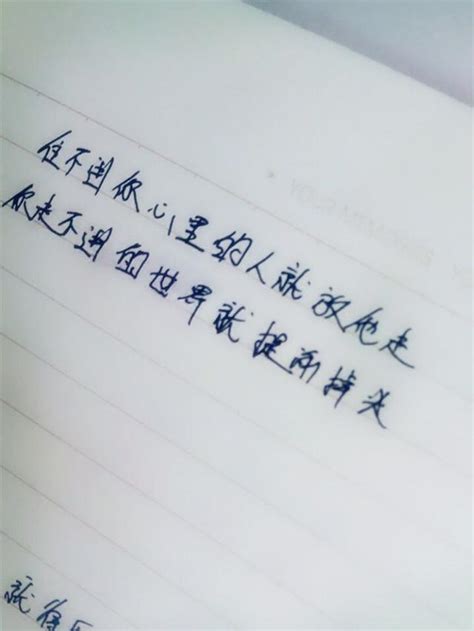 住不进你心里的人就放他走
你走不进的世界就提前掉头
就